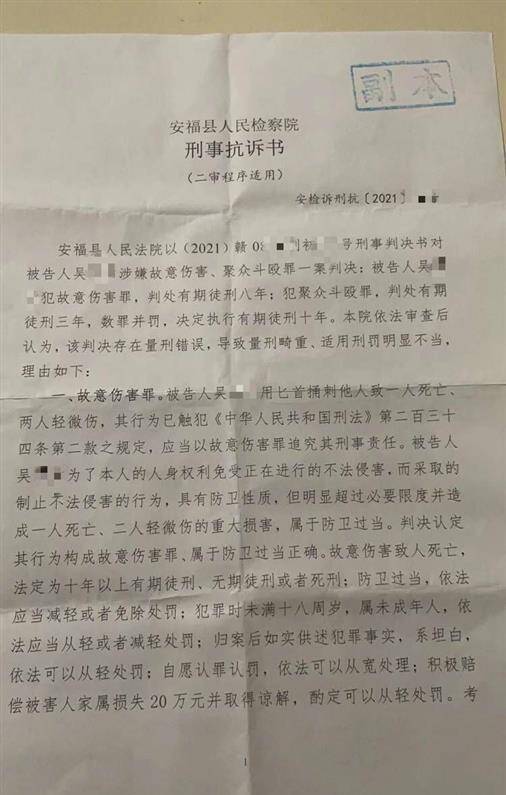 副本
安福县人民检察院
刑事抗诉书
（二审程序适用）
安检诉刑抗〔2021〕
安福县人民法院以（2021）赣08 刑初 号刑事判决书对
被告人吴 涉嫌故意伤害、聚众斗殴罪一案判决：被告人吴
犯故意伤害罪，判处有期徒刑八年；犯聚众斗殴罪，判处有期
徒刑三年，数罪并罚，决定执行有期徒刑十年。本院依法审查后
认为，该判决存在量刑错误，导致量刑畸重、适用刑罚明显不当，
理由如下：
一、故意伤害罪。被告人吴 用匕首捅刺他人致一人死亡、
两人轻微伤，其行为已触犯《中华人民共和国刑法》第二百三十
四条第二款之规定，应当以故意伤害罪追究其刑事责任。被告人
吴 为了本人的人身权利免受正在进行的不法侵害，而采取的
制止不法侵害的行为，具有防卫性质，但明显超过必要限度并造
成一人死亡、二人轻微伤的重大损害，属于防卫过当。判决认定
其行为构成故意伤害罪、属于防卫过当正确。故意伤害致人死亡，
法定为十年以上有期徒刑、无期徒刑或者死刑；防卫过当，依法
应当减轻或者免除处罚；犯罪时未满十八周岁，属未成年人，依
法应当从轻或者减轻处罚；归案后如实供述犯罪事实，系坦白，
依法可以从轻处罚；自愿认罪认罚，依法可以从宽处理；积极赔
偿被害人家属损失20万元并取得谅解，酌定可以从轻处罚。考
1